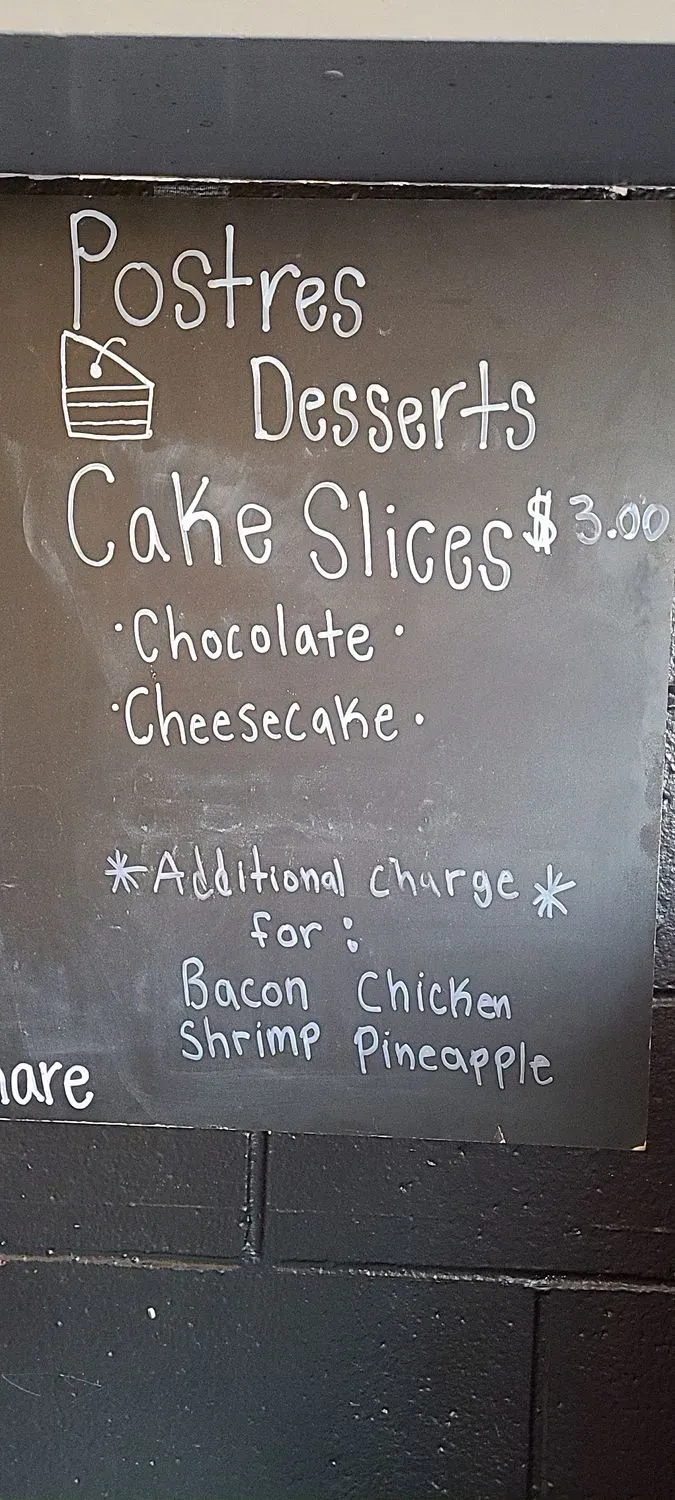 Postres
Desserts
Cake Slices $3.00
·Chocolate·
·Cheesecake·
*Additional charge*
for:
Bacon Chicken
Shrimp Pineapple